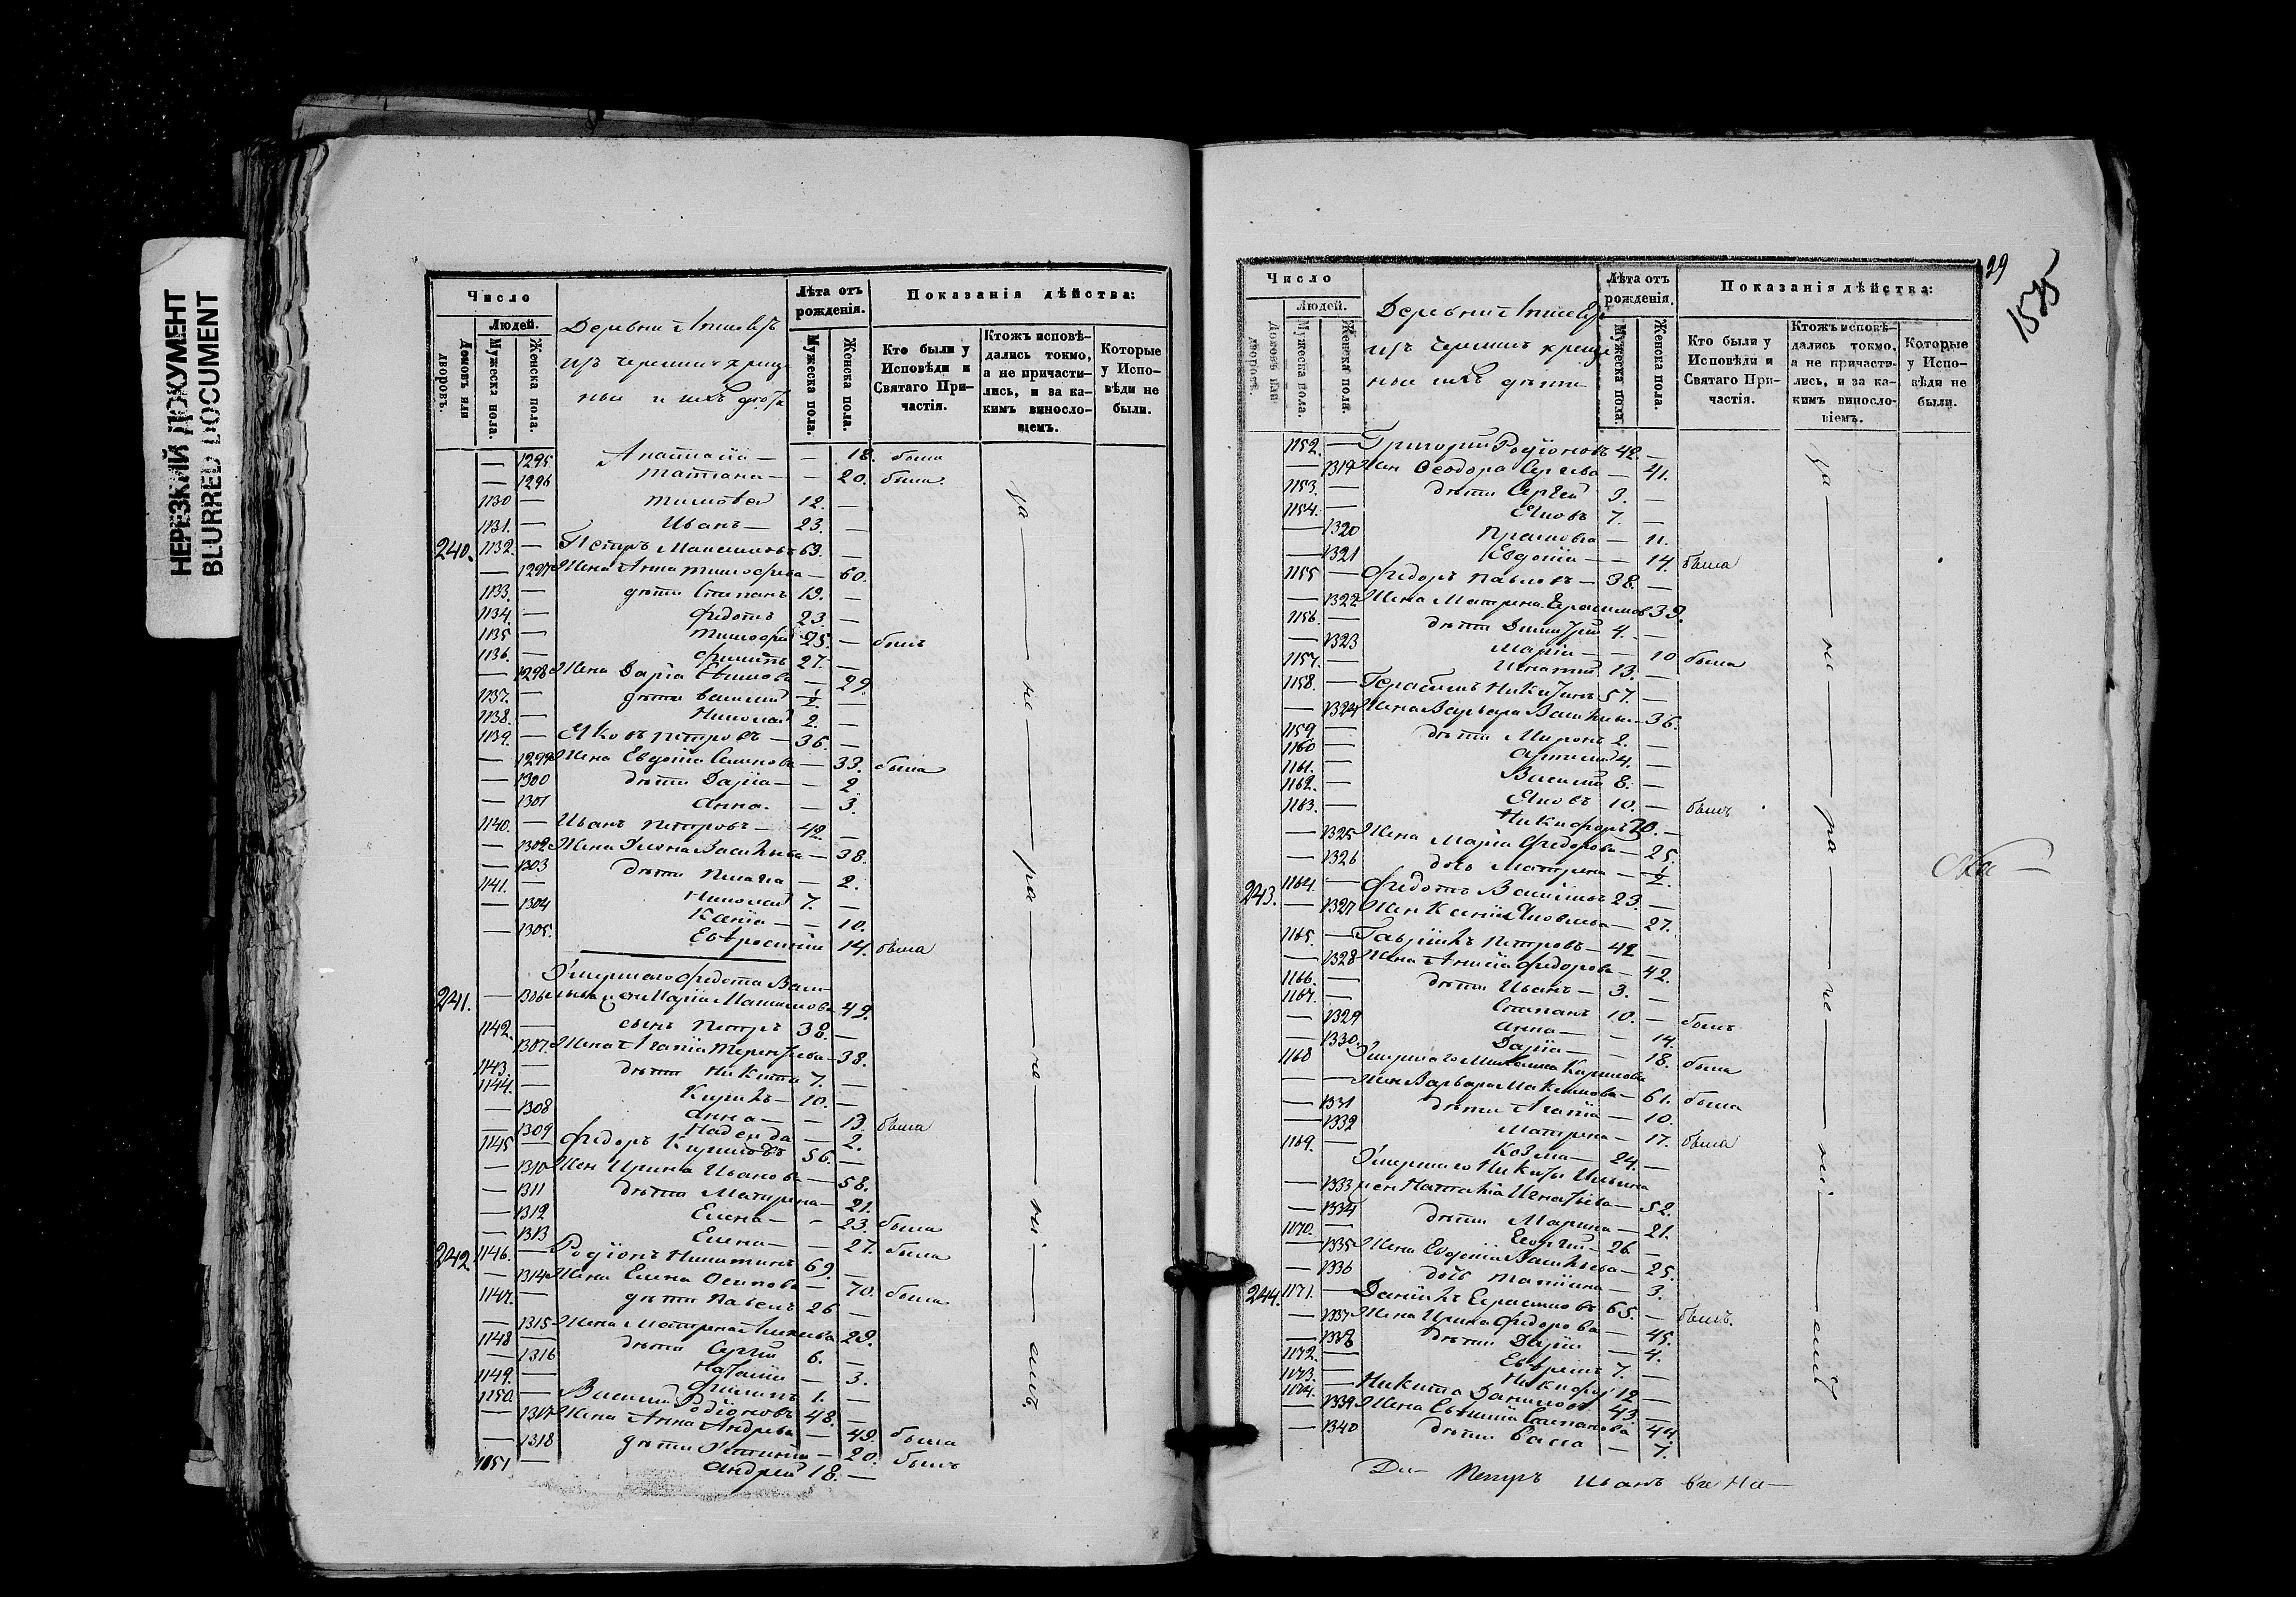 НЕРЕЗКИЙ ДОКУМЕНТ
BLURRED DOCUMENT
Число
Людей.
Домовъ или дворовъ.
Мужеска пола.
Женска пола.
Деревни
изъ черемисъ креще
ны и ихъ
Лѣта отъ рожденія.
Мужеска пола.
Женска пола.
Показанія дѣйства:
Кто были у Исповѣди и Святаго Причастія.
Ктожъ исповѣдались токмо, а не причастились, и за какимъ винословіемъ.
Которые у Исповѣди не были.
— 1295 — 18. была
— 1296 Татіана — — 20. была
1130 — Тимофей 12. —
1131. — Иванъ — 23. —
240. 1132. — Петръ Максимовъ 63. —
— 1297 Жена Анна Тимофеева — 60.
1133. — дѣти Степанъ 19. —
1134. — Федотъ 23. —
1135 — Тимофей 25. — былъ
1136. — Филипъ 27. —
— 1298 Жена Дарія Ефимова — 29.
1137. — дѣти Василій 1/2. —
1138. — Николай 2. —
1139. — Яковъ Петровъ — 36. —
— 1299 Жена Евдокія Семенова — 33. была
— 1300 дѣти Дарія — — 2.
— 1301 Анна. — 3.
1140. — Иванъ Петровъ — 42. —
— 1302 Жена Васильева — 38.
— 1303 дѣти — 2.
1141. — Николай 7. —
— 1304 — 10.
— 1305. 14. была
Умершаго Федота Васи-
241. — 1306 Марія Максимова 49.
1142. — сынъ Петръ 38. —
1307. Жена Агапія Терентьева — 38.
1143. — дѣти Никита 7. —
1144. — Кирилъ — 10. —
— 1308 Анна — — 13. была
— 1309 — 2.
1145 — Федоръ Кириловъ 56. —
— 1310 Жен Ирина Иванова — 58.
— 1311 дѣти Матрена — 21.
— 1312 Елена — — 23. была
— 1313 Елена — — 27. была
242 1146. — Родіонъ Никитинъ 69. —
— 1314 Жена Елена Осипова — 70. была
1147. — дѣти Павелъ 26 —
— 1315 Жена Матрена 29.
1148 — дѣти Сергій 6. —
— 1316 — 3.
1149. — Филипъ 1. —
1150. — Василій Родіоновъ 48. —
— 1317 Жена Анна Андреева — 49. была
— 1318 дѣти — 20. былъ
1051 — Андрей 18. —
29
1535
Число
Людей.
Домовъ или дворовъ.
Мужеска пола.
Женска пола.
Деревни
изъ черемисъ креще
ны ихъ дѣти
Лѣта отъ рожденія.
Мужеска пола.
Женска пола.
Показанія дѣйства:
Кто были у Исповѣди и Святаго Причастія.
Ктожъ исповѣдались токмо, а не причастились, и за какимъ винословіемъ.
Которые у Исповѣди не были.
1152. — Григорій Родіоновъ 42. —
— 1319 Жен Феодора Сергеева — 41.
1153. — дѣти Сергей 3. —
1154. — Яковъ 7. —
— 1320 — 11.
— 1321 Евдокія — — 14. была
1155 — Федоръ Павловъ — 38. —
— 1322 Жена Матрена Герасимов 39.
1156. — дѣти Димитрій 4. —
— 1323 Марія — — 10 была
1157. — Игнатій 13. —
1158. — Герасимъ Никитинъ 57. —
— 1324 Жена Варвара Васильева — 36.
1159 — дѣти Миронъ 2. —
1160 — 4. —
1161. — Василій 8. —
1162. — Яковъ 10. — былъ
1163. — Никифоръ 30. —
— 1325 Жена Марія Федорова — 25.
— 1326 дочь Матрена — 1/2.
243. 1164. — Федотъ 23. —
— 1327 Жен Ксенія Яковлева — 27.
1165. — Гавріилъ Петровъ — 42 —
— 1328 Жена Анисія Федорова — 42.
1166. — дѣти Иванъ — 3. —
1167. — Степанъ 10. — былъ
— 1329 Анна — — 14.
— 1330. Дарія — — 18. была
1168 Умершаго Михаила
— — Жен Варвара Максимова — 61. была
— 1331 дѣти Агапія — 10.
— 1332 Матрена — 17. была
1169. — Козма — 24. —
Умершаго Никиты Ильина
— 1333 жен Наталія Игнатьева — 52.
— 1334 дѣти Марина — 21.
1170. — Георгій — 26 —
— 1335 Жена Евдокія Васильева — 25.
— 1336 дочь Татіана — 3.
244. 1171. — Даніилъ Герасимовъ 65. — былъ.
— 1337 Жена Ирина Федорова — 45.
— 1338 дѣти Дарія — 4.
1172. — Ефремъ 7. —
1173. — Никифоръ 12 —
1174. — Никита Даниловъ 43. —
— 1339 Жена Степанова 44.
— 1340 дѣти Васса — 7.
Петръ Иванъ